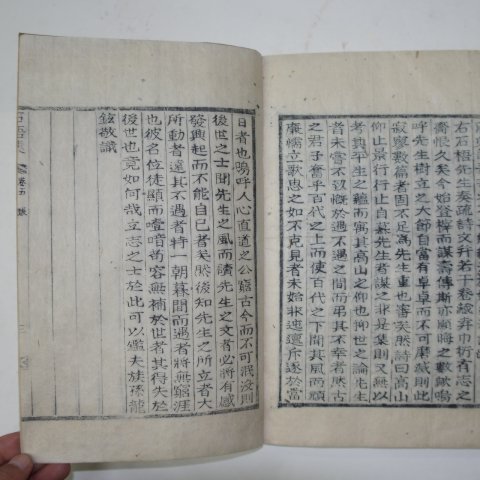 右石梧先生奏疏詩文并若干卷纔弁巾衍有志之
喬恨久矣今始登梓而謀壽傳斯亦顯晦之數歟嗚
呼先生樹立之大節自當有卓卓而不可磨滅則此
寂寥數篇者固不足爲先生重也審矣然詩曰高山
仰止景行行止自綦先生者謀之非是集則又無以
考其平生之蘊而寓其高山之仰也世之論先生
者未嘗不致慨於遇不遇之間而其不幸者然古
之君子奮乎百代之上而使百代之下聞其風而
廉懦立歌思之如不克見者未始非連蹇斥逐於當
日者也嗚呼人心直道之公窮古今而不可泯沒則
後世之士聞先生之風而讀先生之文者必將有感
發興起而不能自已者矣然後知先生之所立者大
所動者遠其不遇者特一朝暮間而遇者將無窮涯
也彼名位徒顯而壹暗苟容無補於世者其得失於
後世也竟如何哉立志之士於此可以鑑夫族孫龍
鉉敬識
石梧集 卷五 跋